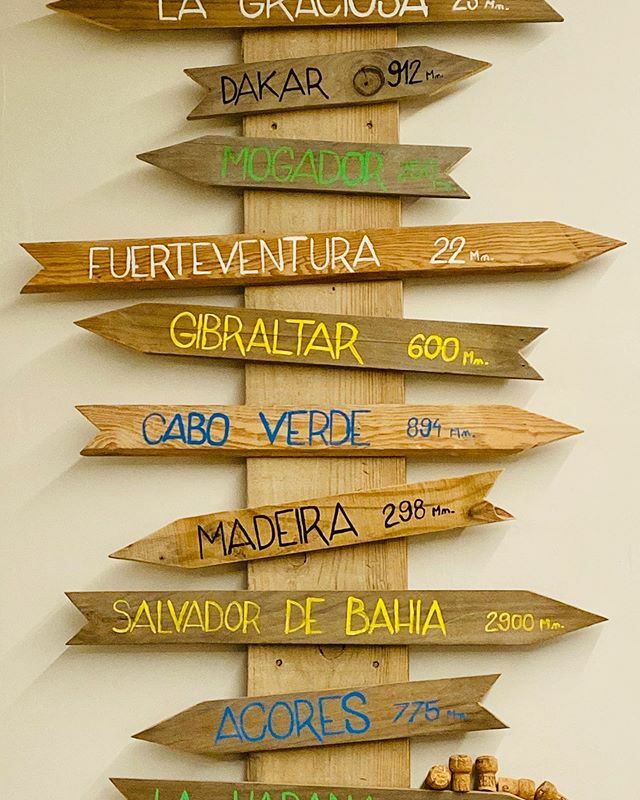 LA GRACIOSA 25 Mn.
DAKAR 912 Mn.
MOGADOR
FUERTEVENTURA 22 Mn.
GIBRALTAR 600 Mn.
CABO VERDE 894 Mn.
MADEIRA 298 Mn.
SALVADOR DE BAHIA 2900 Mn.
AÇORES 775 Mn.
LA HABANA